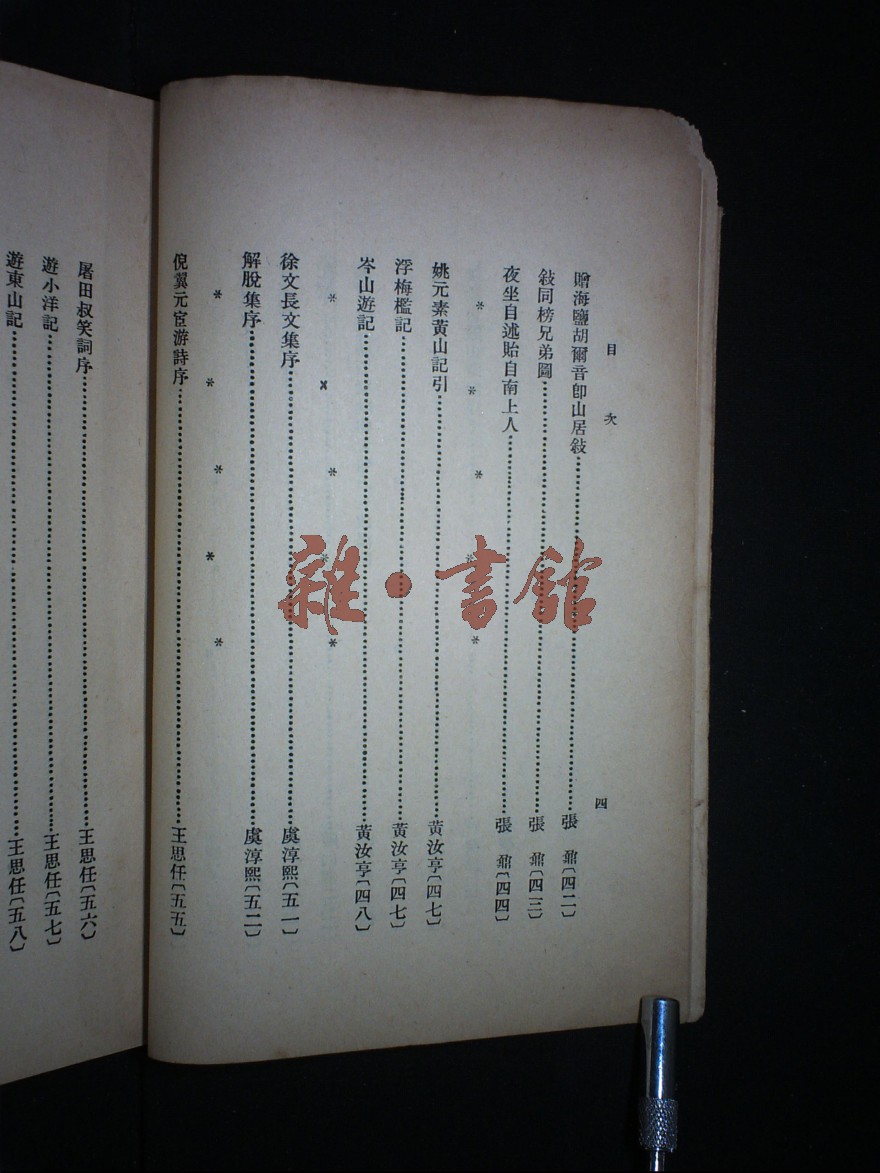 目次
四
贈海鹽胡爾音卽山居敍……張鼐〔四二〕
敍同榜兄弟圖……張鼐〔四三〕
夜坐自述貽自南上人……張鼐〔四四〕
* * * * *
姚元素黃山記引……黃汝亨〔四七〕
浮梅檻記……黃汝亨〔四七〕
岑山遊記……黃汝亨〔四八〕
* * * * *
徐文長文集序……虞淳熙〔五一〕
解脫集序……虞淳熙〔五二〕
* * * * *
倪翼元宦游詩序……王思任〔五五〕
屠田叔笑詞序……王思任〔五六〕
遊小洋記……王思任〔五七〕
遊東山記……王思任〔五八〕
雜·書館